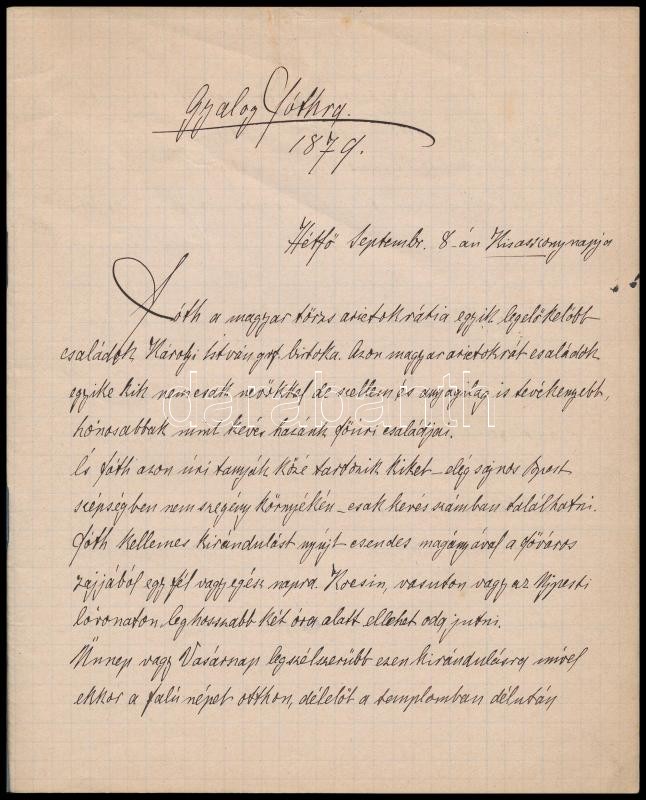 Gyalog Fóthra.
1879.
Hétfő Septembr. 8-án Kisasszony napja
Fóth a magyar törzs aristokrátia egyik legelőkelőbb
családok Károlyi István gróf birtoka. Azon magyar aristokrát családok
egyike kik nemcsak nevökkel de szellem és anyagilag is tevékenyebb,
honosabbak mint kevés hazánk főúri családjai.
És Fóth azon úri tanyák közé tartozik kiket – elég sajnos Bpest
szépségben nem szegény környékén – csak kevés számban találhatni.
Fóth kellemes kirándulást nyújt csendes magányával a főváros
zajjából egy fél vagy egész napra. Kocsin, vasuton vagy az Ujpesti
lóvonaton leghosszabb két óra alatt ellehet oda jutni.
Ünnep vagy Vasárnap legszélszerübb ezen kirándulásra mivel
ekkor a falú népet otthon, délelöt a templomban délután
darabanth